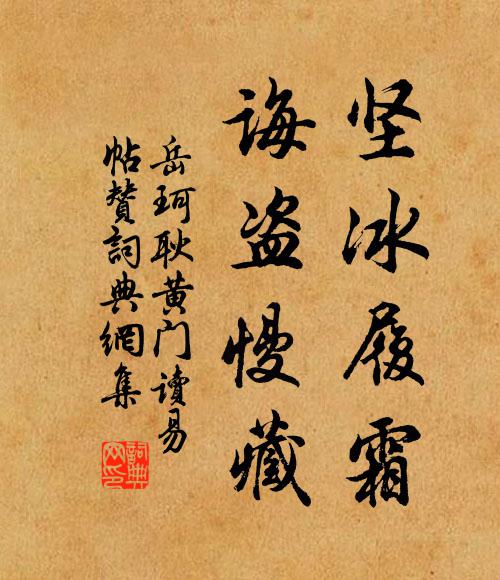 坚冰履霜
诲盗慢藏
岳珂耿黄门读易
帖赞词典網集
詞典網印